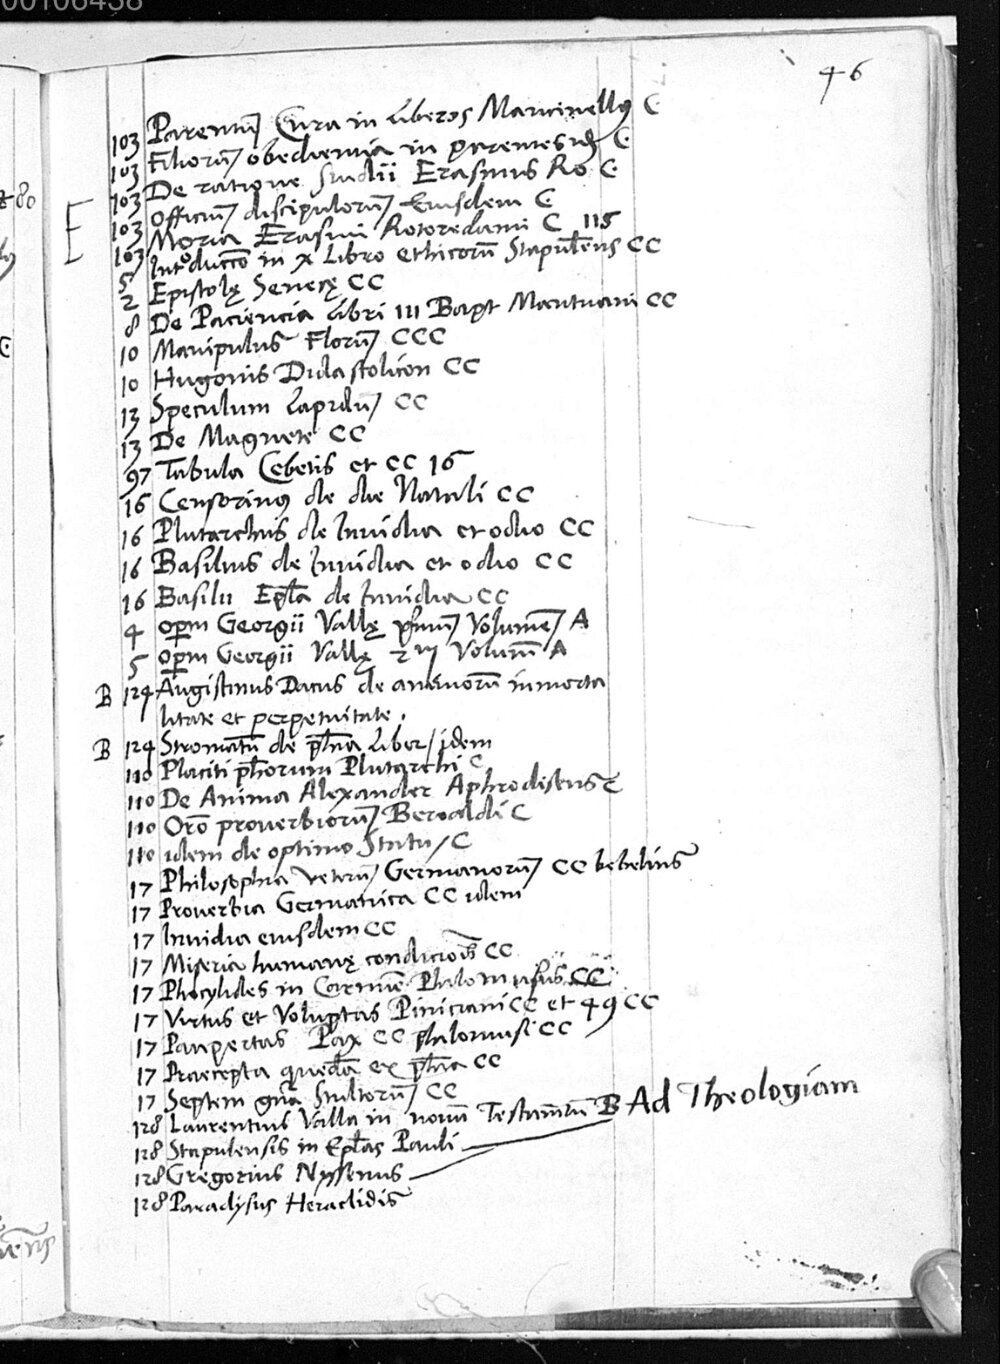 00106438
46
103 Parentū Cura in liberos Mancinellus C
103 Filiorū obedientia in parentes C
103 De ratione studii Erasmus Ro C
103 Officiū discipulorū Eiusdem C
E 103 Moria Erasmi Roteredami C 115
5 Introductō in X Libro ethicorū Stapulēns CC
2 Epistolę Senecę CC
8 De Paciencia libri III Bapt Mantuani CC
10 Manipulus Florū CCC
10 Hugonis Didascolicon CC
13 Speculum Lapidū CC
13 De Magnete CC
97 Tabula Cebetis et CC 16
16 Censorinus de die Natali CC
16 Plutarchus de Inuidia et odio CC
16 Basilius de Inuidia et odio CC
16 Basilii Epl̄a de Inuidia CC
4 Operū Georgii Vallę primū Volumē A
5 Operū Georgii Vallę 2m Volumē A
B 124 Augustinus Datus de animorū inmorta
litate et perpetuitate.
B 124 Stromatū de ph̄ia Liber / idem
110 Placiti ph̄orum Plutarchi C
110 De Anima Alexander Aphrodiseus C
110 Orō prouerbiorū Beroaldi C
110 idem de optimo Statu / C
17 Philosophia veterū Germanorū CC bebelius
17 Prouerbia Germanica CC idem
17 Inuidia eiusdem CC
17 Miseria humanę condiciōis CC
17 Phocylides in Carmīe Philomusus CC
17 Virtus et Voluptas Piniciani CC et 49 CC
17 Paupertas Pax CC philomusi CC
17 Praecepta quedā ex ph̄ia CC
17 Septem gn̄a Stultorū CC
128 Laurentius Valla in nouū Testamētū B Ad Theologiam
128 Stapulensis in Epl̄as Pauli
128 Gregorius Nyssenus
128 Paradysus Heraclidis